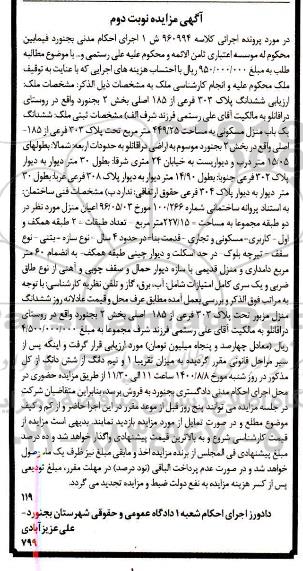 آگهی مزایده نوبت دوم
در مورد پرونده اجرائی کلاسه ۹۶۰۹۹۴ ش ۱ اجرای احکام مدنی بجنورد فیمابین
محکوم له موسسه اعتباری ثامن الائمه و محکوم علیه علی رستمی و.. با موضوع مطالبه
طلب به مبلغ ۹۵۰/۰۰۰/۰۰۰ ریال با احتساب هزینه های اجرایی که با عنایت به توقیف
ملک محکوم علیه و انجام کارشناسی ملک به مشخصات ذیل الذکر: مشخصات ملک:
ارزیابی ششدانگ پلاک ۳۰۳ فرعی از ۱۸۵ اصلی بخش ۲ بجنورد واقع در روستای
درقانلو به مالکیت آقای علی رستمی فرزند شرف الف) مشخصات ثبتی ملک: ششدانگ
یک باب منزل مسکونی به مساحت ۴۴۹/۲۵ متر مربع تحت پلاک ۳۰۳ فرعی از ۱۸۵-
اصلی واقع در بخش ۲ بجنورد موسوم به اراضی درقانلو به حدودات اربعه: شمالا: بطولهای
۱۵/۰۵ متر درب و دیواریست به خیابان ۲۴ متری شرقا: بطول ۳۰ متر دیوار به دیوار
پلاک ۳۰۳ فرعی جنوبا: بطول ۱۴/۹۰ متر دیوار به دیوار پلاک ۳۰۸ فرعی غربا: بطول ۳۰
متر دیوار به دیوار پلاک ۳۰۴ فرعی حقوق ارتفاقی: ندارد ب) مشخصات فنی ساختمان:
به استناد پروانه ساختمانی شماره ۱۰۰/۲۶۶ مورخ ۹۶/۰۵/۰۳ اعیان منزل مورد نظر در
دو طبقه مجموعا به مساحت = ۲۲۷/۱۵ متر مربع - تعداد طبقات - ۲ طبقه همکف و
اول - کاربری - مسکونی و تجاری - قدمت بنا - در حدود ۴ سال - نوع سازه - بتنی - نوع
سقف - تیرچه بلوک - در حد اسکلت و دیوار چینی طبقه همکف- به انضمام ۶۰ متر
مربع دامداری و منزل قدیمی با سازه دیوار حمال و سقف چوبی و آهنی از نوع طاق
ضربی و یک سری کامل امتیازات شامل: آب، برق، گاز و تلفن نظریه کارشناسی: با توجه
به مراتب فوق الذکر و بررسی بعمل آمده مطابق عرف محل و قیمت عادلانه روز ششدانگ
منزل مزبور تحت پلاک ۳۰۳ فرعی از ۱۸۵ اصلی بخش ۲ بجنورد واقع در روستای
درقانلو به مالکیت آقای علی رستمی فرزند شرف مجموعا به مبلغ ۴/۵۰۰/۰۰۰/۰۰۰
ریال (معادل چهارصد و پنجاه میلیون تومان) مورد ارزیابی قرار گرفت و اینکه پس از
سیر مراحل قانونی مقرر گردیده به میزان تقریبا ۱ و نیم دانگ از شش دانگ از کل
مذکور در روز شنبه مورخ ۱۴۰۰/۸/۸ ساعت ۱۱ الی ۱۱/۳۰ از طریق مزایده حضوری در
محل اجرای احکام مدنی دادگستری بجنورد به فروش برسد، بنابراین متقاضیان شرکت
در جلسه مزایده می توانند پنج روز قبل از موعد مقرر در این اجرا حاضر و از کم و کیف
موضوع مطلع و در صورت تمایل از مورد مزایده بازدید نمایند. بدیهی است مزایده از
قیمت کارشناسی شروع و به بالاترین قیمت پیشنهادی واگذار خواهد شد و ده درصد
مبلغ پیشنهادی فی المجلس از برنده مزایده اخذ و مابقی مبلغ نیز ظرف یک ماه وصول
خواهد شد و در صورت عدم پرداخت الباقی (نود درصد) در مهلت مقرر، مبلغ تودیعی
پس از کسر هزینه مزایده به نفع دولت ضبط و مزایده تجدید می گردد.
۱۱۹
دادورز اجرای احکام شعبه ۱ دادگاه عمومی و حقوقی شهرستان بجنورد-
علی عزیزآبادی
۷۹۹